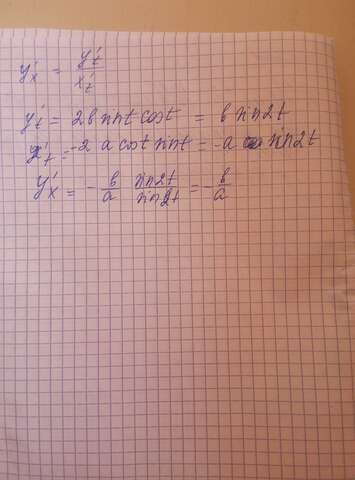 y'x = y't / x't
y't = 2b sint cost = b sin2t
x't = -2 a cost sint = -a sin2t
y'x = - b/a sin2t/sin2t = - b/a